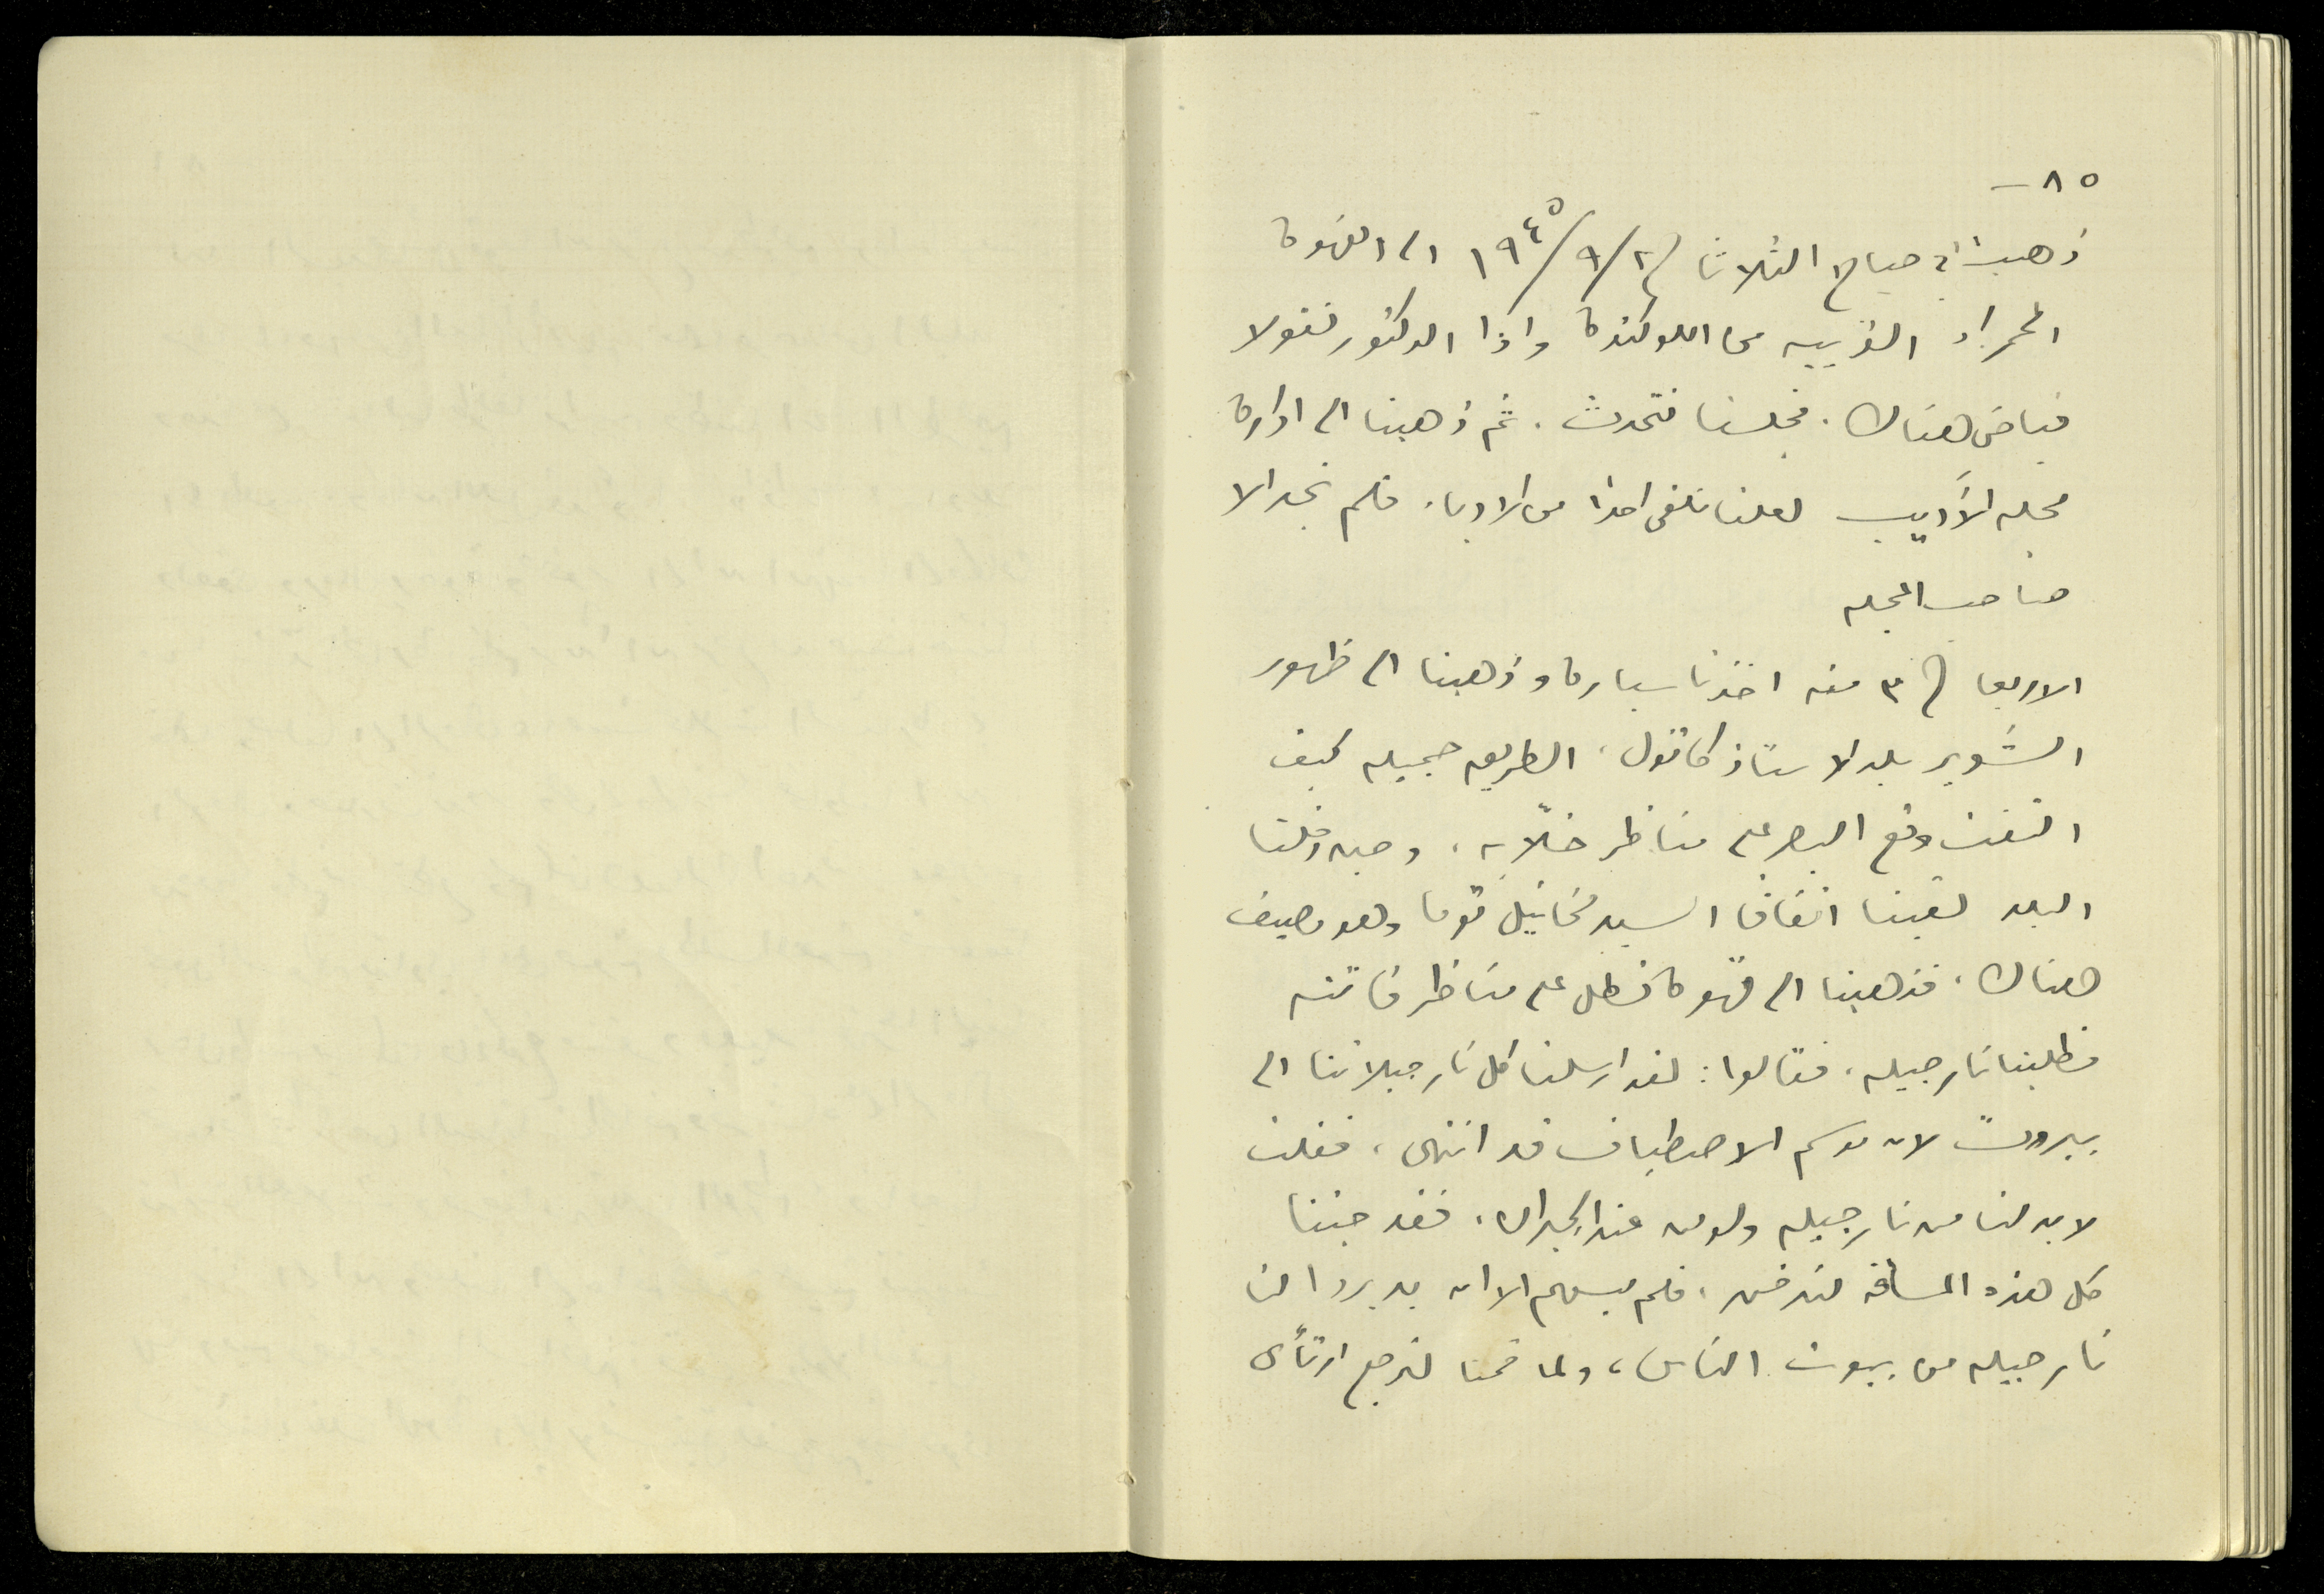 ٨٥ –
ذهبت في صباح الثلاثا في ٢/٩/١٩٤٥ الى القهوة
الحمراء القريبه من اللوكنده واذا الدكتور نقولا
فياض هناك. فجلسنا نتحدث. ثم ذهبنا الى ادارة
مجله الأديب لعلنا نلقى احدا من الادباء فلم نجد الا
صاحب المجله
الاربعا في ٣ منه اخذنا سياره وذهبنا الى ظهور
الشوير بلد الاستاذ كاتول، الطريق جميله كيف
التفت وقع البصر على مناظر خلّابه، وحين دخلنا
البلد لقينا اتفاقا السيد مخائيل توما وهو مصيف
هناك، فذهبنا الى قهوة تطل على مناظر فاتنه
فطلبنا نارجيله، فقالوا: لقد ارسلنا كل نارجيلاتنا الى
بيروت لان موسم الاصطياف قد انتهى، فقلت
لا بد لنا من نارجيله ولو من عند الجيران، فقد جئنا
كل هذه المسافه لندخن، فلم يسعهم الا ان يدبروا لنا
نارجيله من بيوت الناس، ولما قمنا لنرجع ارتأى